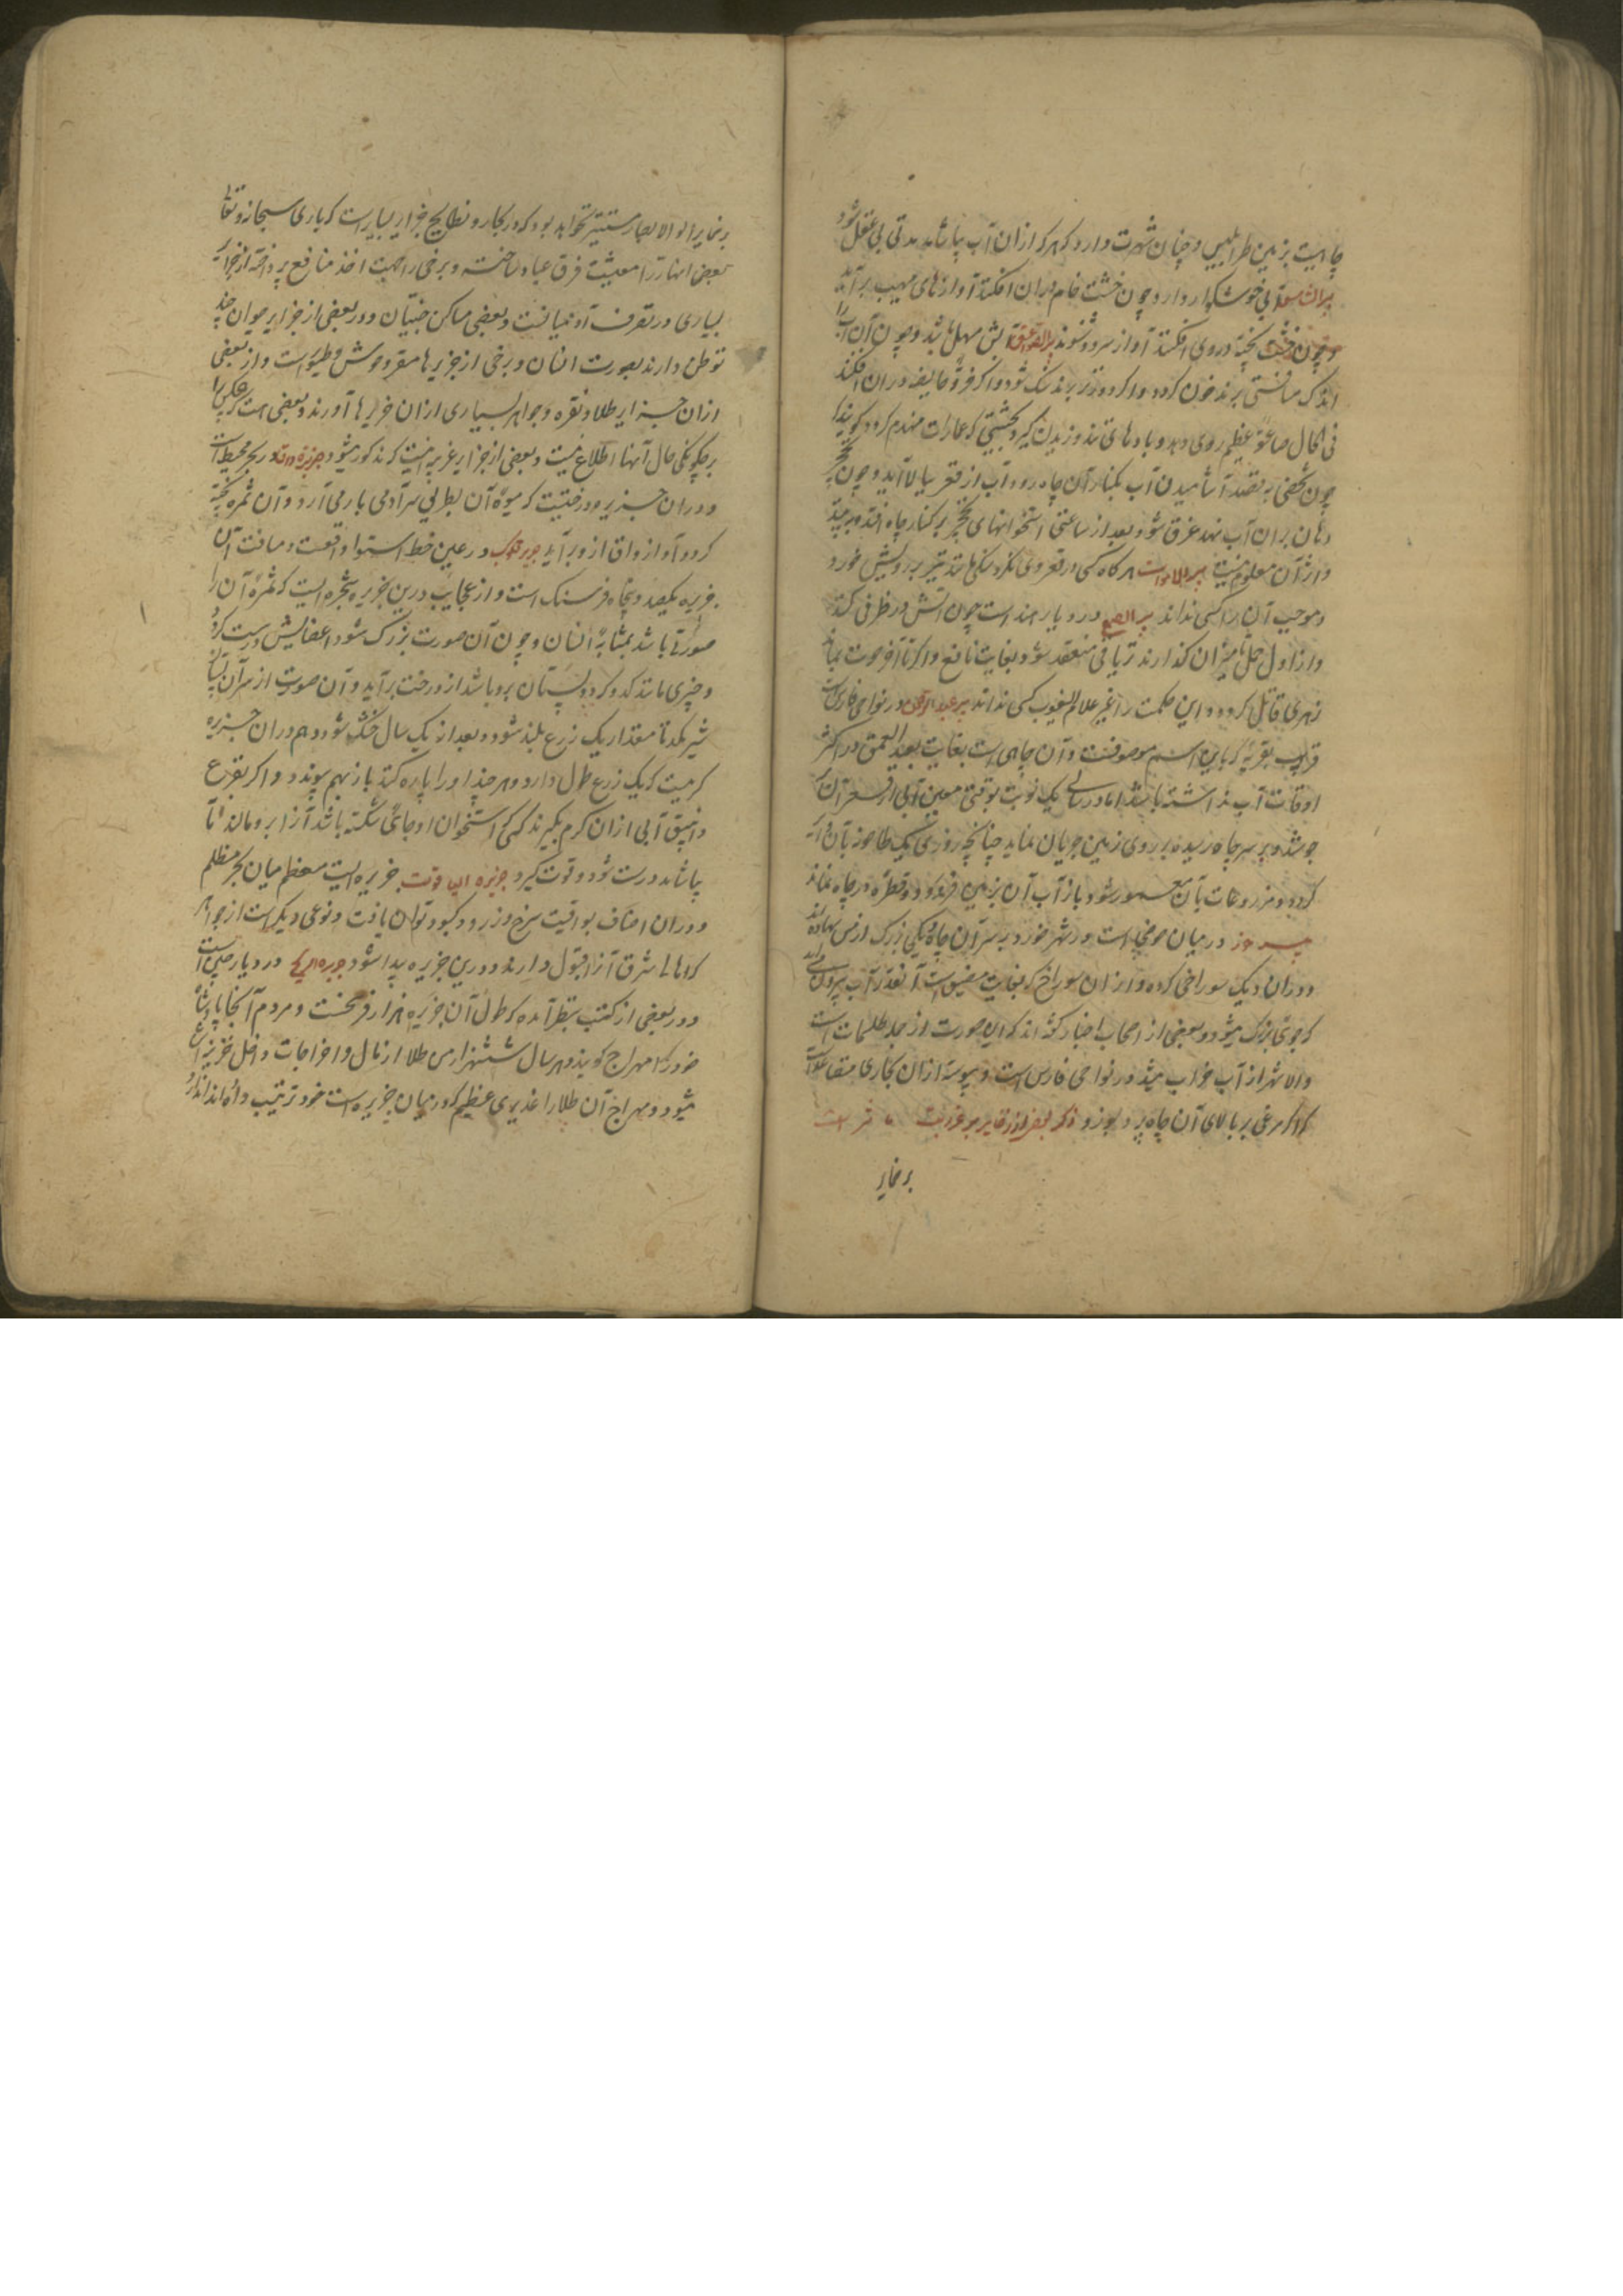 چاهیست بزمین طرابلس و چنان شهرت دارد که هر که ازان آب بیاشامد مدتی بی عقل شود
آبی خوشکوار دارد و چون خشت خام دران افکنند آوازهای مهیب برآید
و چون خشت پخته در وی افکنند آواز سرود شنوند آبش سهل باشد و چون آن آب را
اندک مسافتی برند خون کردد و اگر دورتر برند سنک شود و اگر خرقه حایض دران افکنند
فی الحال صاعقه عظیم روی دهد و بادهای تند وزیدن گیرد بحیثیتی که عمارات منهدم کردد
چون شخصی به قصد آشامیدن آب بکنار آن چاه رود آب از قعر ببالا آید و چون
دهان بران آب نهد غرق شود بعد از ساعتی استخوانهای بر کنار چاه افتد
و از آن معلوم نیست هر کاه کسی در قعر وی نکرد سنکی مانند تیر بر رویش خورد
و موجب آن را کسی نداند در دیار هند است چون آبش در ظرف کنند
و از اول حمل تا میزان کذارند تریاقی منعقد شود بغایت نافع و اگر تا آخر حوت
زهری قاتل کردد و این حکمت را غیر علام الغیوب کسی نداند در نواحی فارس است
قریب بقریه که باین اسم موصوفست و آن چاهی است بغایت بعید العمق در اکثر
اوقات آب نداشته باشد اما در سالی یک نوبت بوقتی معین آبی از قعر آن
جوشد و بر سر چاه رسیده بر روی زمین جریان نماید چنانچه روزی یک طاحونه بآن
کردد و مزروعات بآن معمور شود باز آب آن بزمین فرو رود و قطره در چاه نماند
در میان است در شهر خورد بر سر آن چاه دیکی بزرک از مس نهاده اند
و دران دیک سوراخی کرده و ازان سوراخ که بغایت مضیق است آنقدر آب بیرون
که جوی بزرک میشود و بعضی از اصحاب اخبار کفته اند که این صورت از جمله طلسمات است
در نواحی فارس است و پیوسته ازان بخاری متصاعد است
که اگر مرغی بر بالای آن چاه پرد بسوزد ذکر بعضی از جزایر
بر ضمایر
بر ضمایر اولو الابصار مستتر نخواهد بود که در بحار و بطایح جزایر بسیار است که باری سبحانه و تعالی
بعضی از انها را معیشت فرق عباد ساخته و برخی را جهت اخذ منافع پرداخته از جزایر
بسیاری در تصرف آدمیانست و بعضی مساکن جنیان و در بعضی از جزایر حیوان چند
توطن دارند بصورت انسان و برخی از جزیرها مقر وحوش و طیور است و از بعضی
ازان جزایر طلا و نقره و جواهر بسیاری ازان جزیرها آورند و بعضی هست که هیچکس را
بر چکونکی حال آنها اطلاع نیست و بعضی از جزایر غریبه اینست که مذکور میشود در بحر محیط است
و دران جزیره درختیست که میوه آن بطریق سر آدمی بار می آرد و آن ثمره پخته
کردد و آواز واق ازو برآید در عین خط استوا واقعست و مسافت آن
جزیره یکصد و پنجاه فرسنک است و از عجایب درین جزیره شجره ایست که ثمره آن را
صورتی باشد بمثابه انسان و چون آن صورت بزرک شود اعضایش درست کردد
و چیزی مانند کدو کرد و پستان برو باشد از درخت برآید و آن صورت از سر آن پستان
شیر مکد تا مقدار یک ذرع بلند شود و بعد از یک سال خشک شود و هم دران جزیره
کرمیست که یک ذرع طول دارد و هر چند او را پاره کنند باز بهم پیوندد و اگر بقرع
و انبیق آبی ازان کرم بکیرند کسی که استخوان او جائی شکسته باشد آنرا برو مالند تا
بیاشامد درست شود و قوت گیرد جزیره الیاقوت جزیره ایست معظم میان بحر مظلم
و دران اصناف یواقیت سرخ و زرد و کبود توان یافت و نوعی دیکر است از جواهر
که اهالی شرق آنرا قبول دارند و درین جزیره پیدا شود در دیار چین است
و در بعضی از کتب بنظر آمده که طول آن جزیره هزار فرسخست و مردم آنجا پادشاه
خود را مهراج کویند و هر سال ششهزار من طلا از مال و اخراجات داخل خزینه
میشود و مهراج آن طلا را غدیری عظیم که در میان جزیره است خود ترتیب داده اندازد